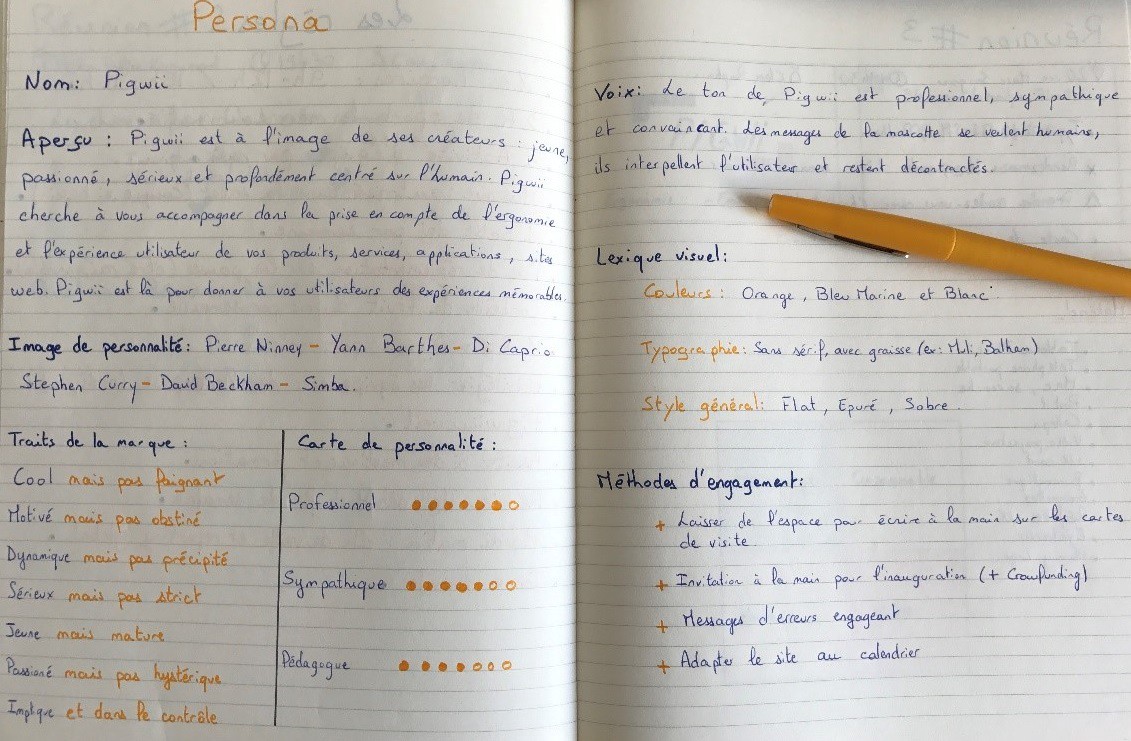 Persona
Nom: Pigwii
Aperçu : Pigwii est à l'image de ses créateurs : jeune,
passionné, sérieux et profondément centré sur l'humain. Pigwii
cherche à vous accompagner dans la prise en compte de l'ergonomie
et l'expérience utilisateur de vos produits, services, applications, sites
web. Pigwii est là pour donner à vos utilisateurs des expériences mémorables.
Image de personnalité: Pierre Ninney - Yann Barthes - Di Caprio
Stephen Curry - David Beckham - Simba.
Traits de la marque :
Cool mais pas faignant
Motivé mais pas obstiné
Dynamique mais pas précipité
Sérieux mais pas strict
Jeune mais mature
Passioné mais pas hystérique
Impliqué et dans le contrôle
Carte de personnalité :
Professionnel
Sympathique
Pédagogue
Réunion #3
Voix: Le ton de Pigwii est professionnel, sympathique
et convaincant. Les messages de la mascotte se veulent humains,
ils interpellent l'utilisateur et restent décontractés.
Lexique visuel:
Couleurs : Orange, Bleu Marine et Blanc
Typographie: Sans sérif, avec graisse (ex: Muli, Balham)
Style général: Flat, Epuré, Sobre.
Méthodes d'engagement:
+ Laisser de l'espace pour écrire à la main sur les cartes
de visite
+ Invitation à la main pour l'inauguration (+ Crowfunding)
+ Messages d'erreurs engageant
+ Adapter le site au calendrier